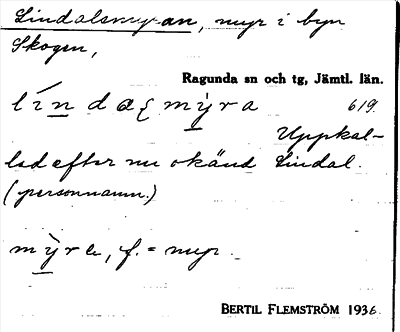 Lindalsmyran, myr i byn
Skogen,
Ragunda sn och tg, Jämtl. län.
líndaʂmỳra 619.
Uppkal-
lad efter nu okänd Lindal.
(personnamn.)
mỳra, f. = myr.
BERTIL FLEMSTRÖM 1936.